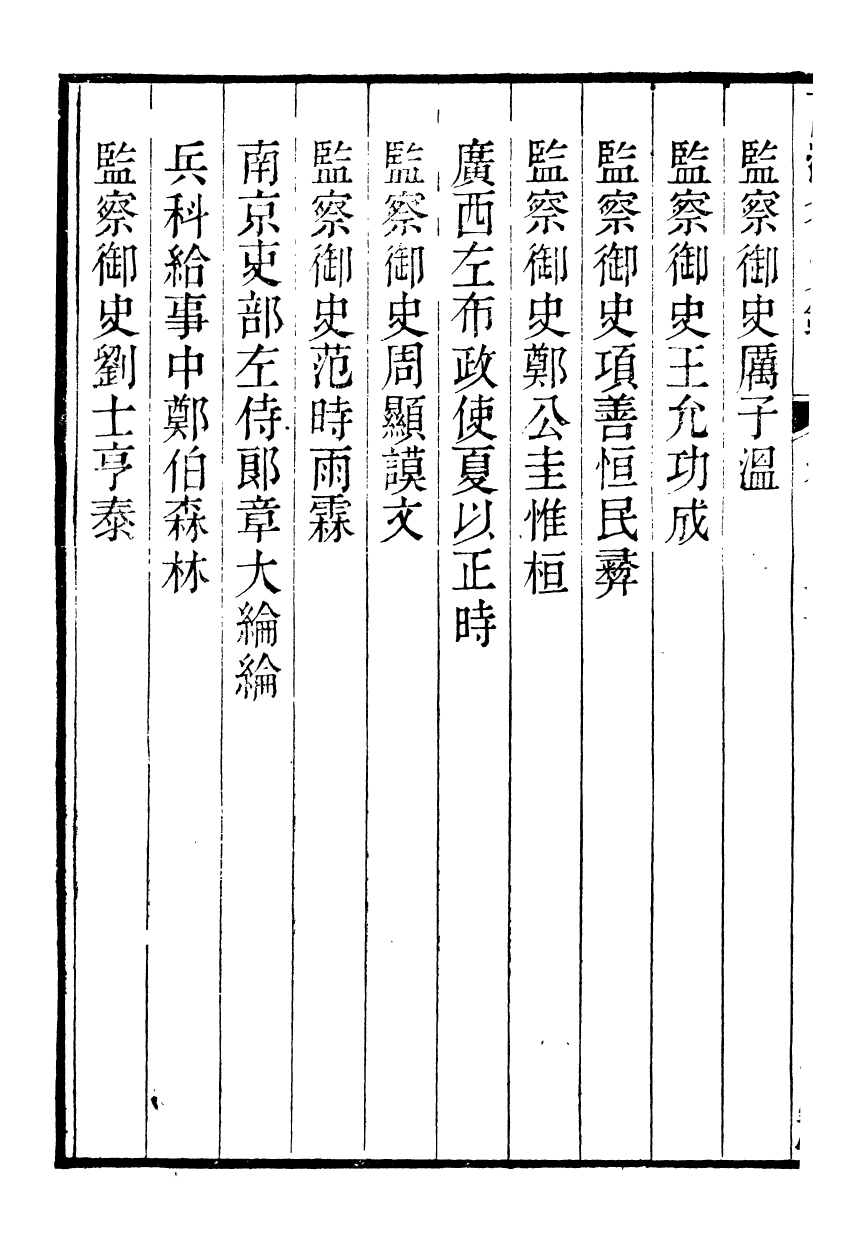 監察御史厲子溫
監察御史王允功成
監察御史項善恒民彞
監察御史鄭公圭惟桓
廣西左布政使夏以正時
監察御史周顯謨文
監察御史范時雨霖
南京吏部左侍郎章大綸綸
兵科給事中鄭伯森林
監察御史劉士亨泰